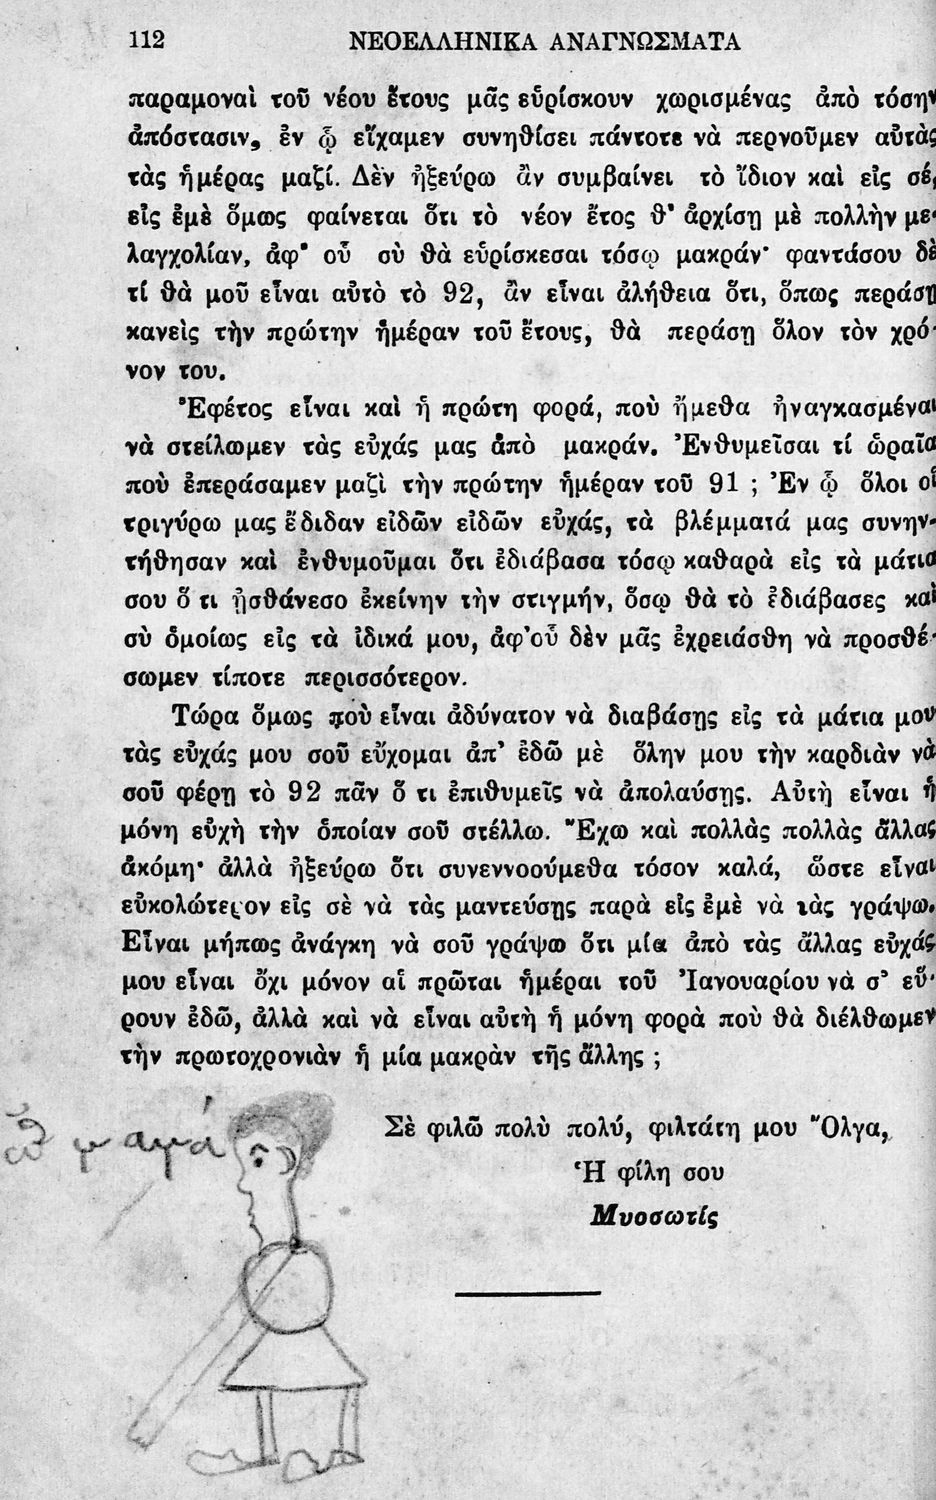 112
ΝΕΟΕΛΛΗΝΙΚΑ ΑΝΑΓΝΩΣΜΑΤΑ
παραμοναὶ τοῦ νέου ἔτους μᾶς εὑρίσκουν χωρισμένας ἀπὸ τόσην
ἀπόστασιν, ἐν ᾧ εἴχαμεν συνηθίσει πάντοτε νὰ περνοῦμεν αὐτὰς
τὰς ἡμέρας μαζί. Δὲν ἠξεύρω ἂν συμβαίνει τὸ ἴδιον καὶ εἰς σέ,
εἰς ἐμὲ ὅμως φαίνεται ὅτι τὸ νέον ἔτος θ' ἀρχίσῃ μὲ πολλὴν με-
λαγχολίαν, ἀφ' οὗ σὺ θὰ εὑρίσκεσαι τόσῳ μακράν· φαντάσου δὲ
τί θὰ μοῦ εἶναι αὐτὸ τὸ 92, ἂν εἶναι ἀλήθεια ὅτι, ὅπως περάσῃ
κανεὶς τὴν πρώτην ἡμέραν τοῦ ἔτους, θὰ περάσῃ ὅλον τὸν χρό-
νον του.
Ἐφέτος εἶναι καὶ ἡ πρώτη φορά, ποὺ ἤμεθα ἠναγκασμέναι
νὰ στείλωμεν τὰς εὐχάς μας ἀπὸ μακράν. Ἐνθυμεῖσαι τί ὡραῖα
ποὺ ἐπεράσαμεν μαζὶ τὴν πρώτην ἡμέραν τοῦ 91 ; Ἐν ᾧ ὅλοι οἱ
τριγύρω μας ἔδιδαν εἰδῶν εἰδῶν εὐχάς, τὰ βλέμματά μας συνην-
τήθησαν καὶ ἐνθυμοῦμαι ὅτι ἐδιάβασα τόσῳ καθαρὰ εἰς τὰ μάτια
σου ὅ τι ᾐσθάνεσο ἐκείνην τὴν στιγμήν, ὅσῳ θὰ τὸ ἐδιάβασες καὶ
σὺ ὁμοίως εἰς τὰ ἰδικά μου, ἀφ'οὗ δὲν μᾶς ἐχρειάσθη νὰ προσθέ-
σωμεν τίποτε περισσότερον.
Τώρα ὅμως ποὺ εἶναι ἀδύνατον νὰ διαβάσῃς εἰς τὰ μάτια μου
τὰς εὐχάς μου σοῦ εὔχομαι ἀπ' ἐδῶ μὲ ὅλην μου τὴν καρδιὰν νὰ
σοῦ φέρῃ τὸ 92 πᾶν ὅ τι ἐπιθυμεῖς νὰ ἀπολαύσῃς. Αὐτὴ εἶναι ἡ
μόνη εὐχὴ τὴν ὁποίαν σοῦ στέλλω. Ἔχω καὶ πολλὰς πολλὰς ἄλλας
ἀκόμη· ἀλλὰ ἠξεύρω ὅτι συνεννοούμεθα τόσον καλά, ὥστε εἶναι
εὐκολώτερον εἰς σὲ νὰ τὰς μαντεύσῃς παρὰ εἰς ἐμὲ νὰ τὰς γράψω.
Εἶναι μήπως ἀνάγκη νὰ σοῦ γράψω ὅτι μία ἀπὸ τὰς ἄλλας εὐχάς
μου εἶναι ὄχι μόνον αἱ πρῶται ἡμέραι τοῦ Ἰανουαρίου νὰ σ' εὕ-
ρουν ἐδῶ, ἀλλὰ καὶ νὰ εἶναι αὐτὴ ἡ μόνη φορὰ ποὺ θὰ διέλθωμεν
τὴν πρωτοχρονιὰν ἡ μία μακρὰν τῆς ἄλλης ;
Σὲ φιλῶ πολὺ πολύ, φιλτάτη μου Ὄλγα,
Ἡ φίλη σου
Μυοσωτίς